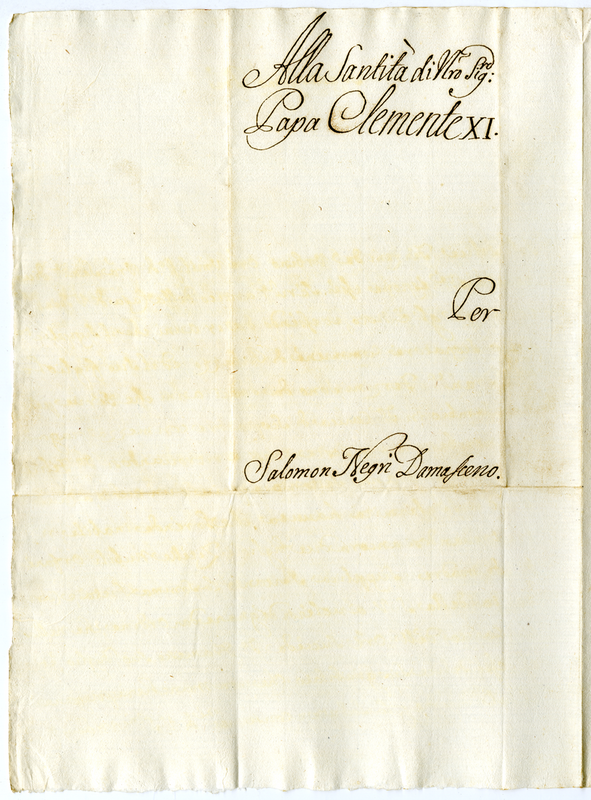 Alla Santità di Nro Sigre:
Papa Clemente XI.
Per
Salomon Negri Damasceno.